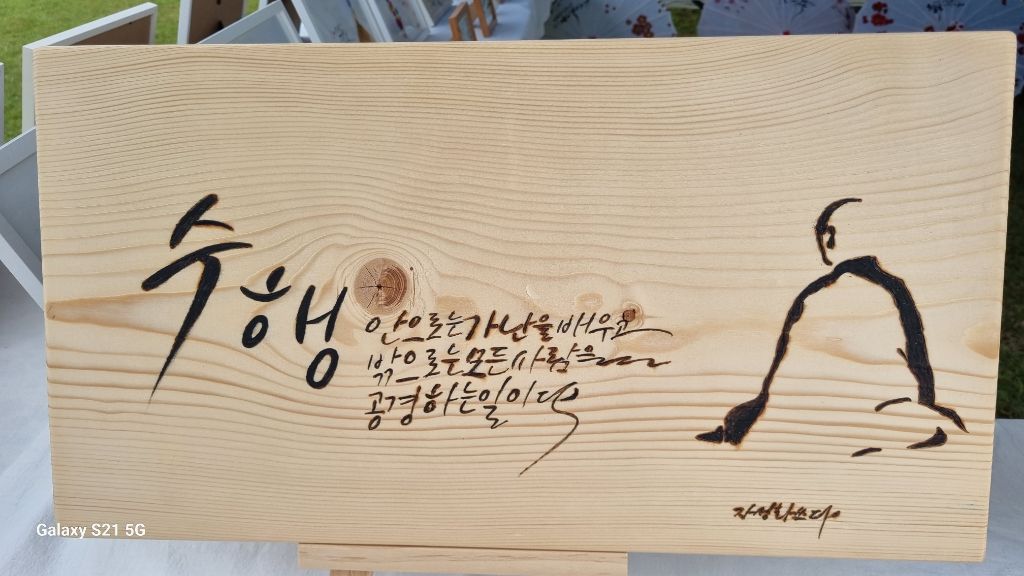 수행
안으로는 가난을 배우고
밖으로는 모든 사람을
공경하는 일이다
자성화 쓰다
Galaxy S21 5G